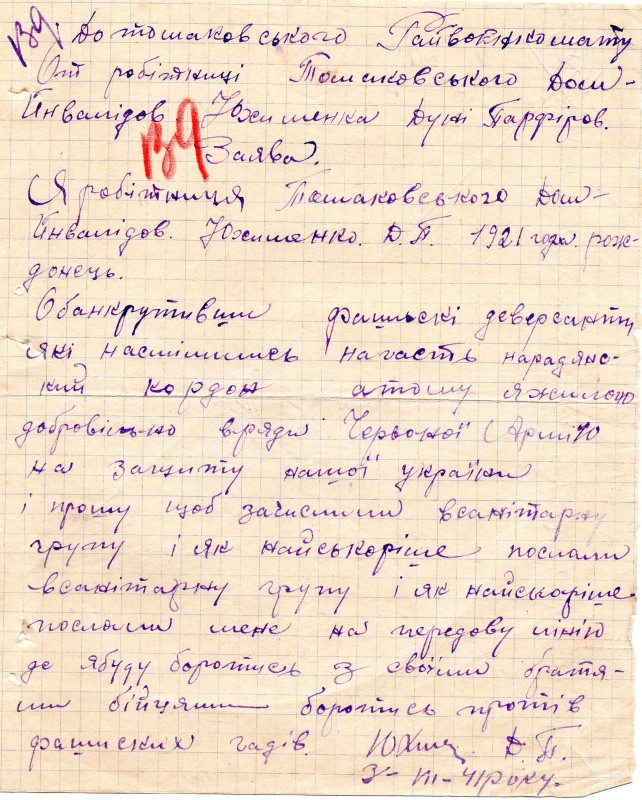 вд
До томаковського Райвоєнкомату
От робітниці Томаковського Дом-
Інвалідов Юхименка Дуні Парфіров.
вд
Заява.
Я робітниця Томаковського Дом-
Інвалідов. Юхименко. Д.П. 1921 года рож-
донець.
Обанкрутивши фашиські диверсанти
які насмілились напасть на радянс-
кий кордон атому яжилаю
добровільно вряди Червоної Армію
на защиту нашої україни
і прошу щоб зачислили всанітарну
групу і як найскоріше послали
всанітарну групу і як найскоріше
послали мене на передову лінію
де ябуду боротись з своїми братя-
ми бійцями боротись протів
фашиских гадів. Юхим. Д.П.
41 року.